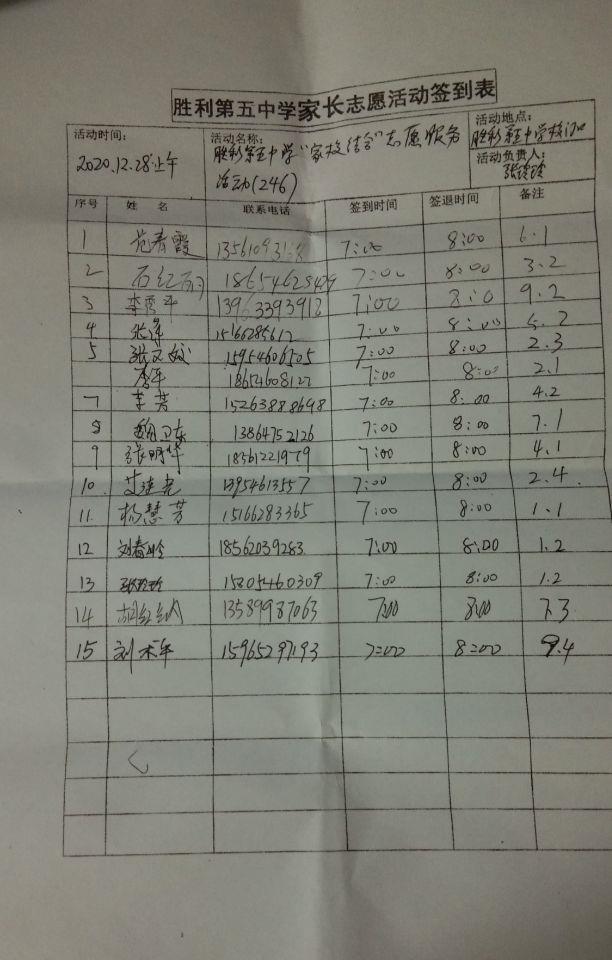 胜利第五中学家长志愿活动签到表
活动时间:
2020.12.28上午
活动名称:
胜利第五中学“家校结合”志愿服务
活动(246)
活动地点:
胜利第五中学校门口
活动负责人:
张玲玲
序号 姓 名 联系电话 签到时间 签退时间 备注
1 范春霞 7:00 8:00 6.1
2 石红 7:00 8:00 3.2
3 李秀平 13963393918 7:00 8:0 9.2
4 7:00 8:00 5.2
5 张文姣 15954606505 7:00 8:00 2.3
7:00 8:00 2.1
7 李芳 15263888698 7:00 8:00 4.2
8 魏卫东 13864752126 7:00 8:00 7.1
9 张明华 18561221979 7:00 8:00 4.1
10. 7:00 8:00 2.4.
11. 杨慧芳 15166283365 7:00 8:00 1.1
12 刘春玲 18562039283 7:00 8:00 1.2
13 15805460309 7:00 8:00 1.2
14 13589987063 7:00 8:00 7.3
15 刘 15965297193 7:00 8:00 9.4